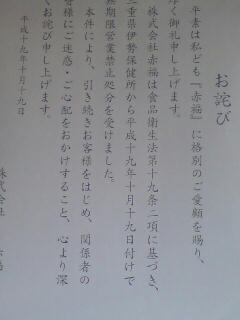 お詫び
平素は私ども『赤福』に格別のご愛顧を賜り、
厚く御礼申し上げます。
株式会社赤福は食品衛生法第十九条二項に基づき、
三重県伊勢保健所から平成十九年十月十九日付けで
無期限営業禁止処分を受けました。
本件により、引き続きお客様をはじめ、関係者の
皆様にご迷惑・ご心配をおかけすること、心より深
くお詫び申し上げます。
平成十九年十月十九日
株式会社